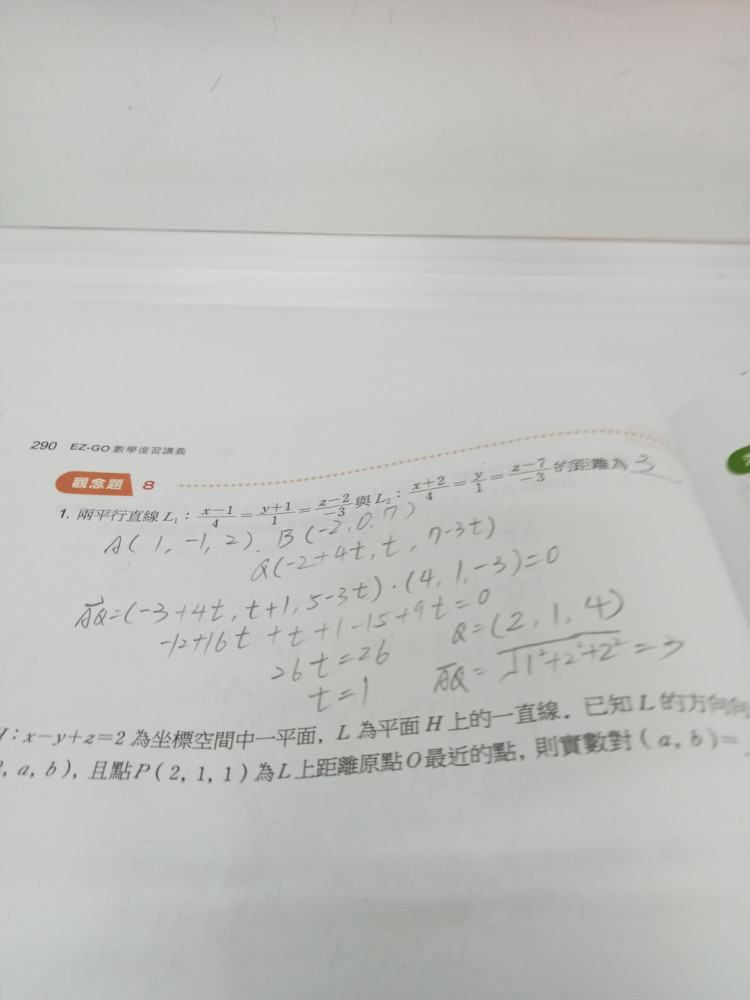 290 EZ-GO 數學復習講義
觀念題 8
1. 兩平行直線 L₁：\frac{x-1}{4}=\frac{y+1}{1}=\frac{z-2}{-3} 與 L₂：\frac{x+2}{4}=\frac{y}{1}=\frac{z-7}{-3} 的距離為 3
A(1,-1,2). B(-2,0,7)
Q(-2+4t, t, 7-3t)
AQ=(-3+4t, t+1, 5-3t)·(4,1,-3)=0
-12+16t+t+1-15+9t=0
26t=26 Q=(2,1,4)
t=1 AQ=√1²+2²+2²=3
：x−y+z=2 為坐標空間中一平面，L 為平面 H 上的一直線．已知 L 的方向向
, a, b)，且點P(2, 1, 1)為L上距離原點O最近的點，則實數對(a, b)=